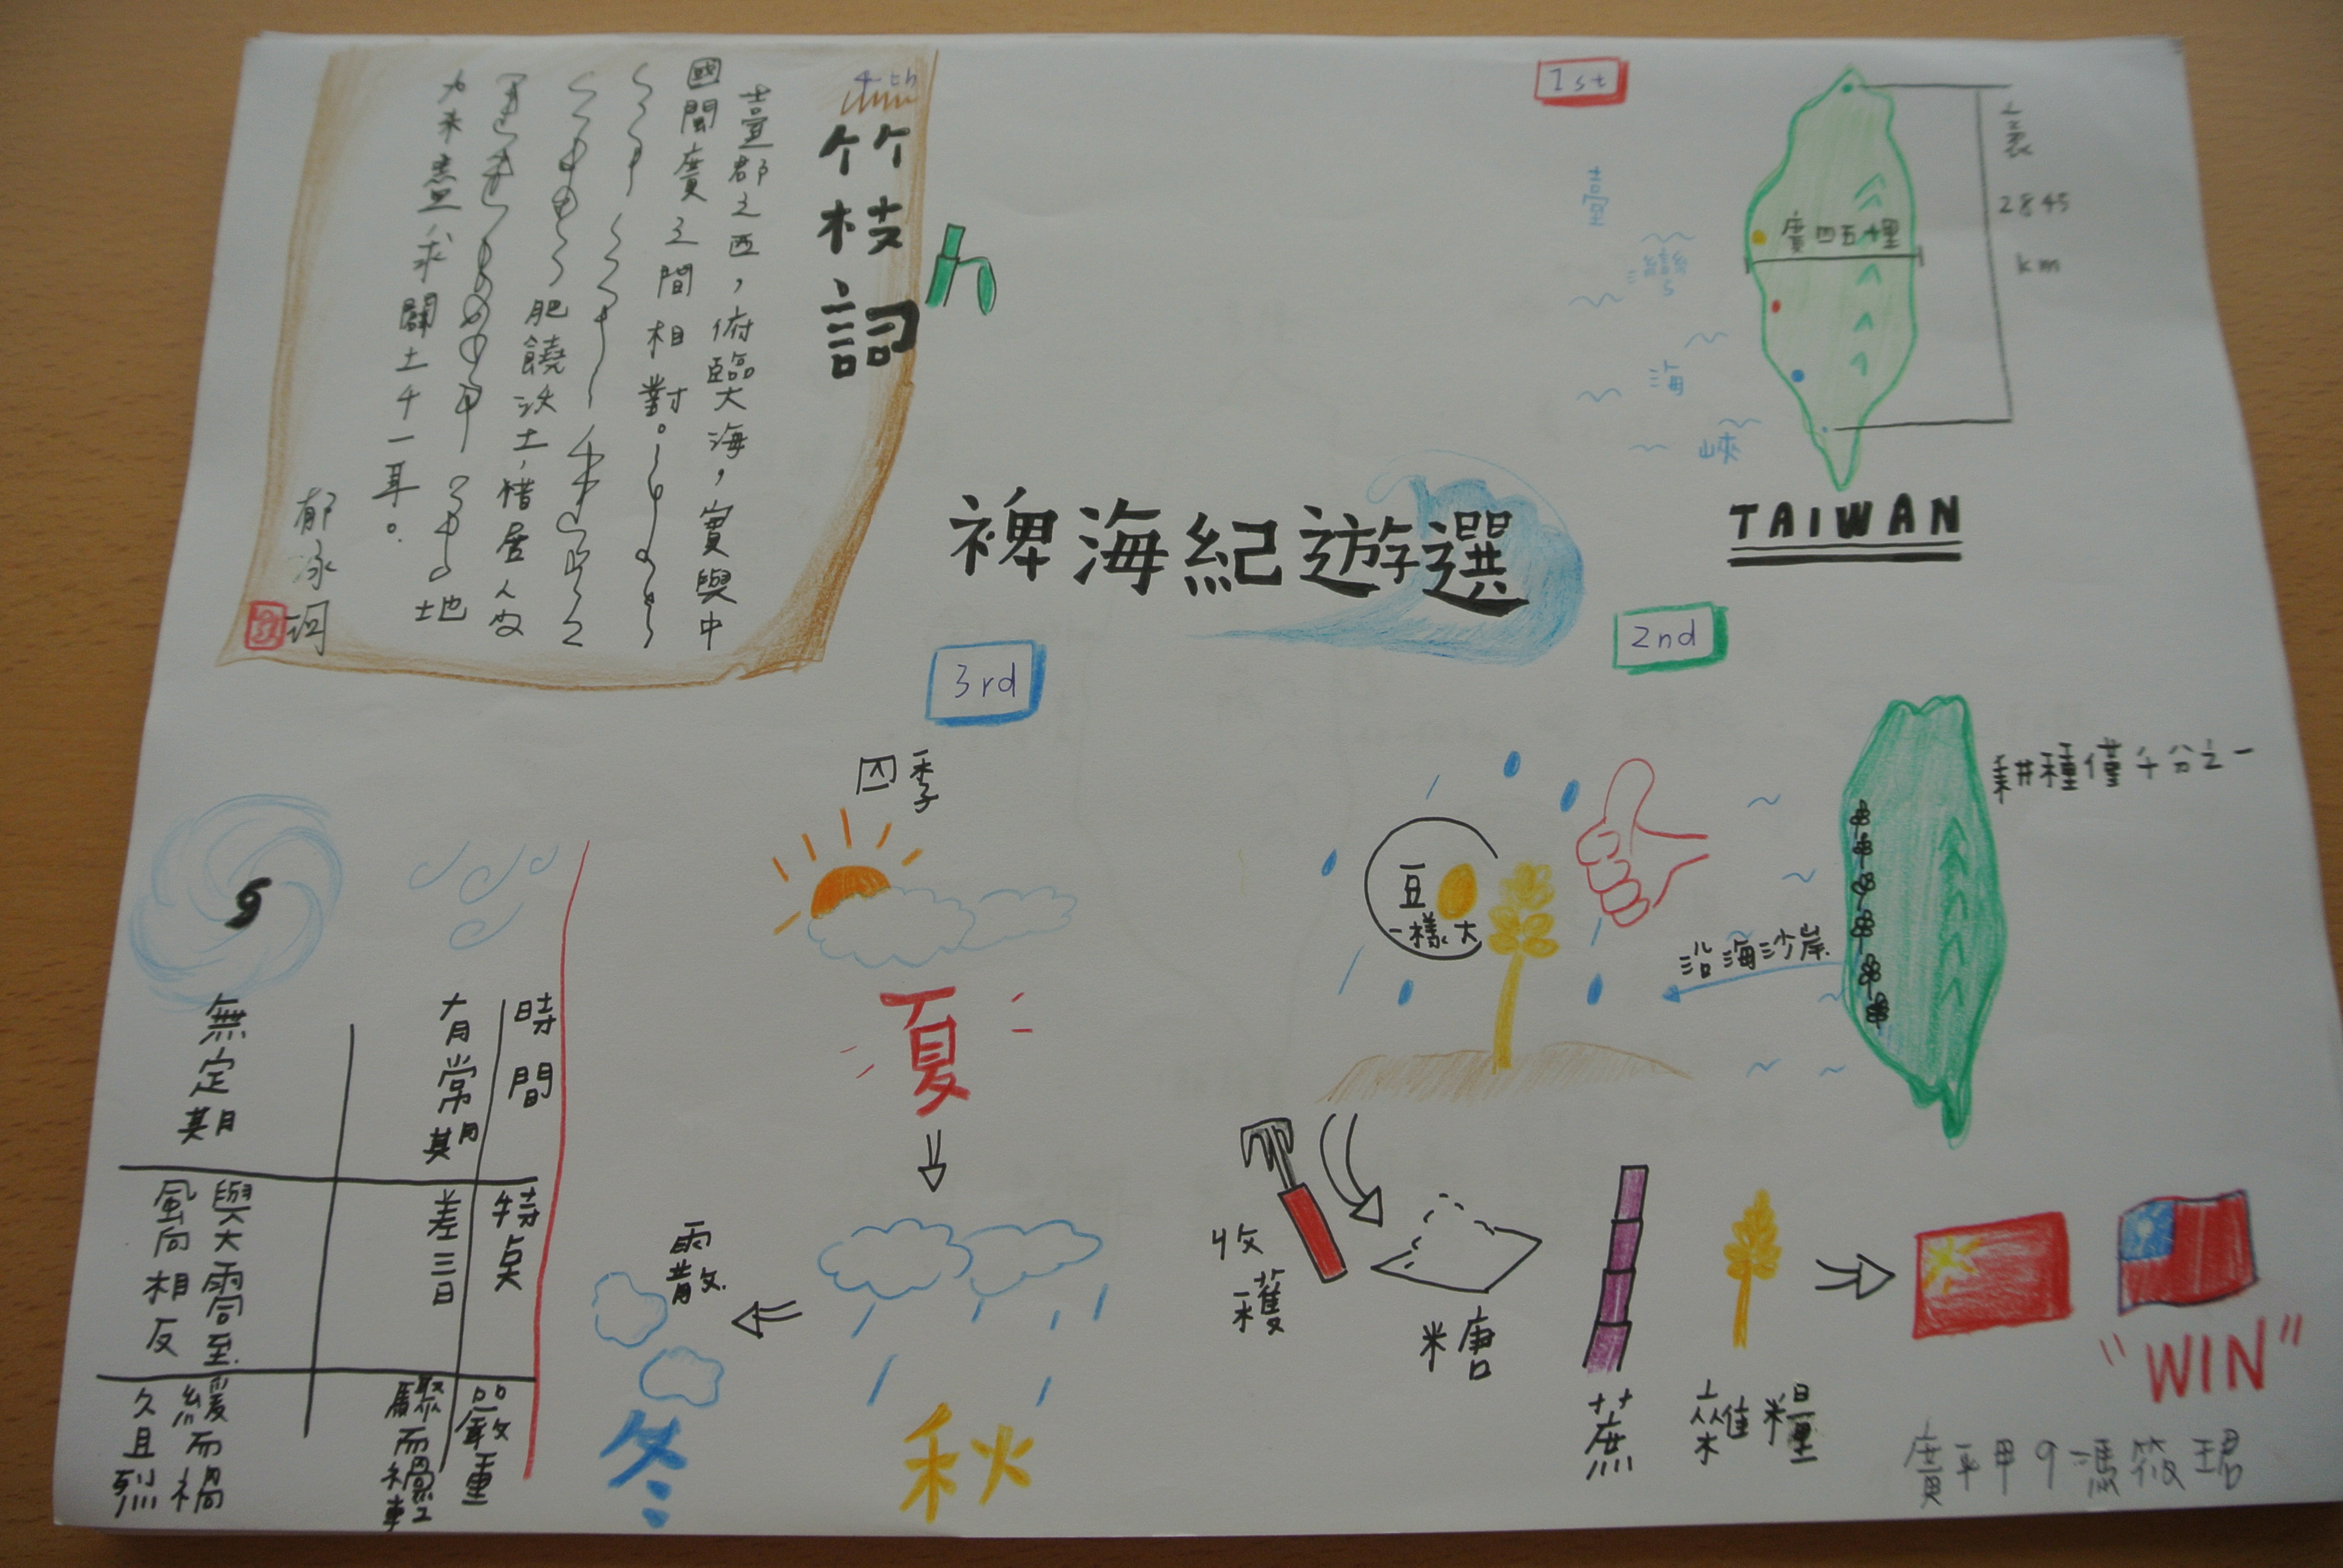 裨海紀遊選
1st
袤
2845
km
廣四五十里
臺
灣
海
峽
TAIWAN
2nd
耕種僅十分之一
沿海沙岸
豆
一樣大
收穫
糖
蔗
雜糧
"WIN"
3rd
四季
夏
秋
雨散
冬
時間
有常期
無定期
特點
差三日
與大雪至
風向相反
嚴重
驟而輕
緩而禍
久且烈
4th
竹枝詞
臺郡之西，俯臨大海，實與中
國閩廣之間相對。
肥饒沃土，惜居人少
地
力未盡，求闢土千一耳。
郁永河
廣平甲9馮筱珺